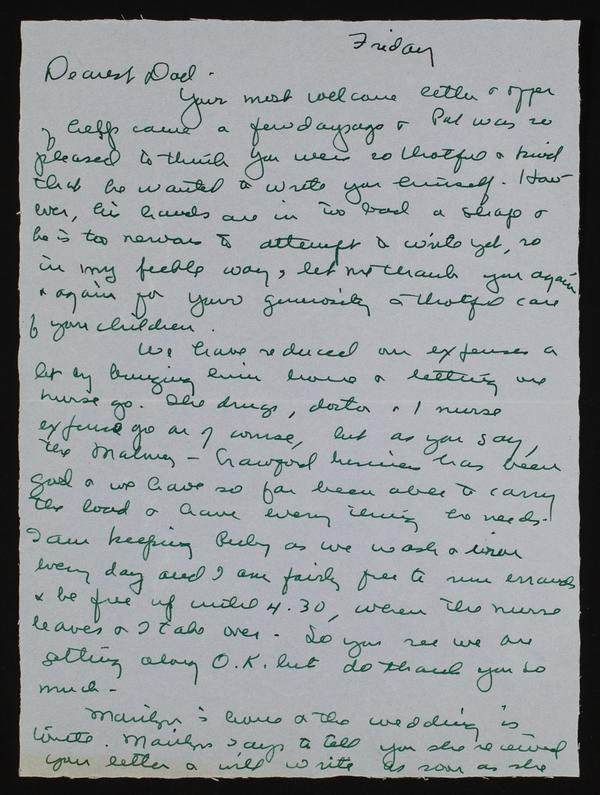 Friday
Dearest Dad -
Your most welcome letter & offer
of help came a few days ago & Pat was so
pleased to think you were so thotful & kind
that he wanted to write you himself. How-
ever, his hands are in too bad a shape &
he is too nervous to attempt to write yet, so
in my feeble way, let me thank you again
& again for your generosity & thotful care
of your children.
We have reduced our expenses a
lot by bringing him home & letting one
nurse go. The drugs, doctor & 1 nurse
expense go on of course, but as you say,
the - Crawford business has been
good & we have so far been able to carry
the load & have every thing he needs.
I am keeping Ruby as we wash & iron
every day and I am fairly free to run errands
& be free up until 4.30, when the nurse
leaves & I take over. So you see we are
getting along O.K. but do thank you so
much -
Marilyn is home & the wedding is
. Marilyn says to tell you she received
your letter & will write as soon as she